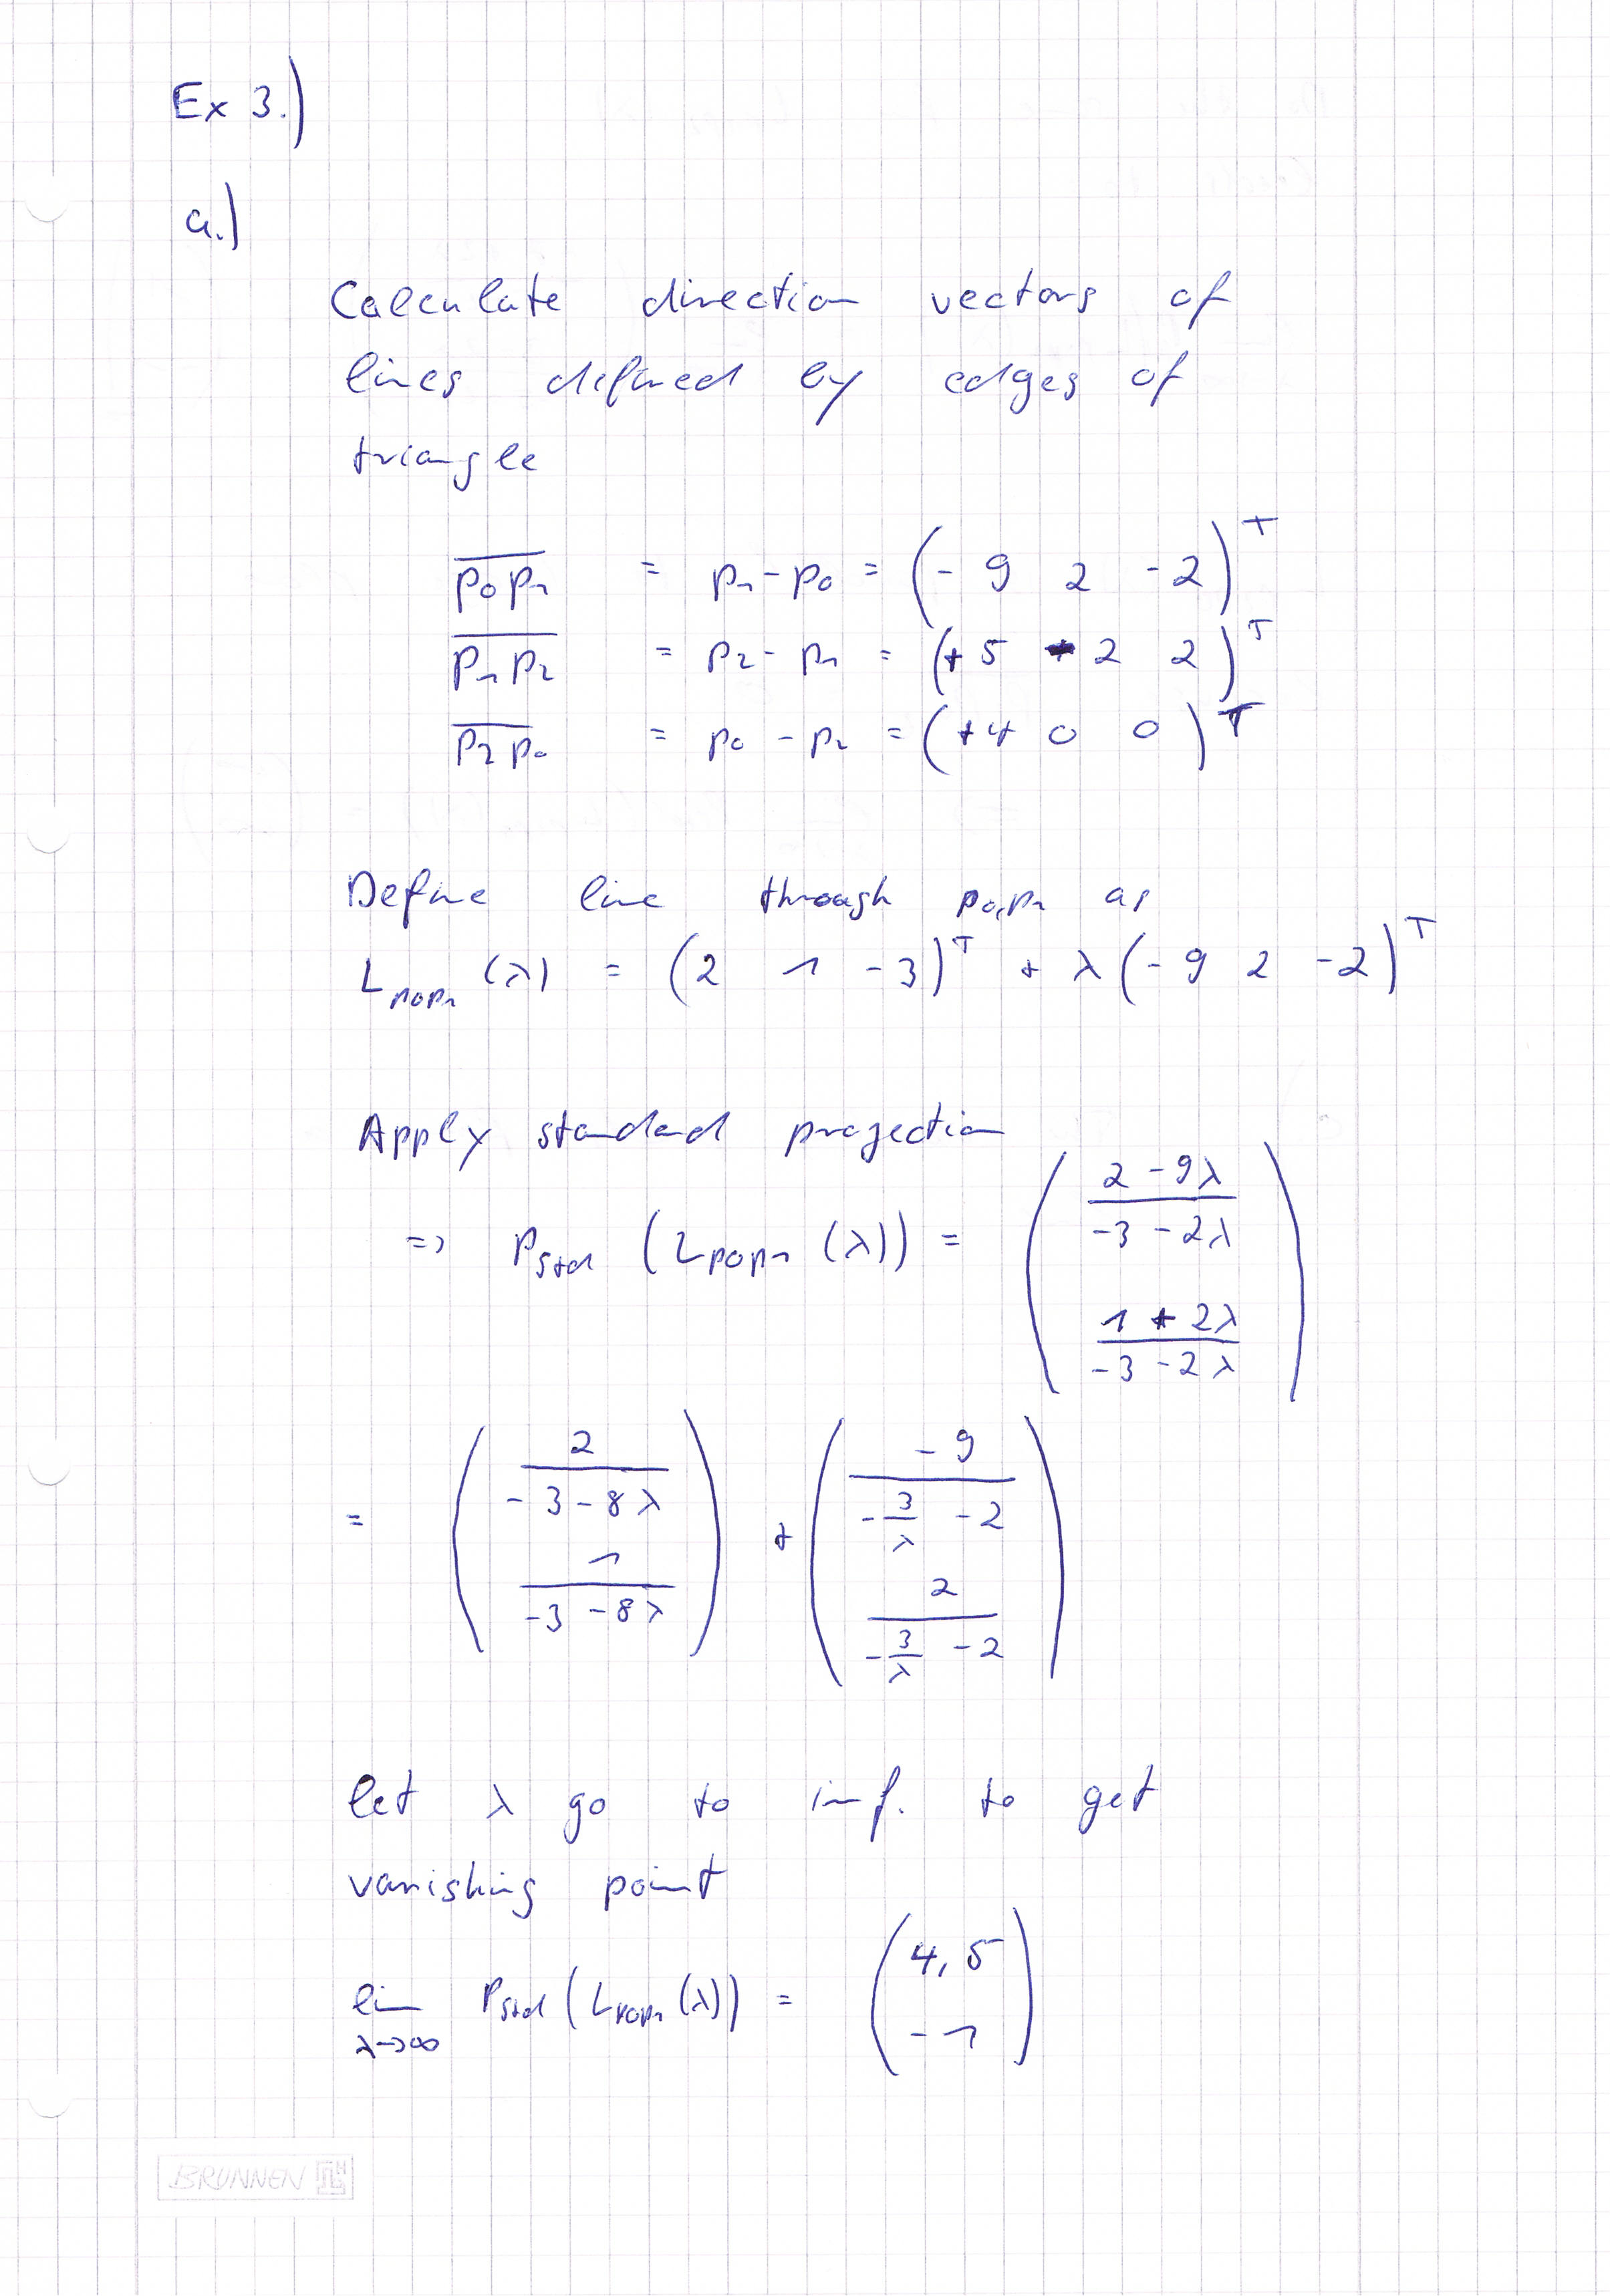 Ex 3.)
a.)
Calculate direction vectors of
lines defined by edges of
triangle
p₀p₁ = p₁ - p₀ = (- 9 2 -2)ᵀ
p₁p₂ = p₂ - p₁ = (+5 - 2 2)ᵀ
p₂p₀ = p₀ - p₂ = (+4 0 0)ᵀ
Define line through p₀,p₁ as
L_p₀p₁ (λ) = (2 1 -3)ᵀ + λ (- 9 2 -2)ᵀ
Apply standard projection
=> P_std (L_p₀p₁ (λ)) = ( (2 - 9λ)/(-3 - 2λ) (1 + 2λ)/(-3 - 2λ) )
= ( 2/(-3 - 8λ) 1/(-3 - 8λ) ) + ( -9/(-3/λ - 2) 2/(-3/λ - 2) )
let λ go to inf. to get
vanishing point
lim λ->∞ P_std (L_p₀p₁ (λ)) = ( 4,5 -1 )
BRUNNEN